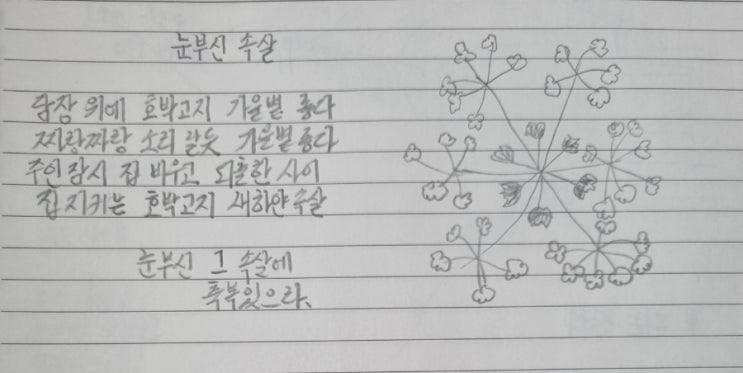 눈부신 속살
담장 위에 호박고지 가을볕 좋다
짜랑짜랑 소리 날듯 가을볕 좋다
주인 잠시 집 비우고 외출한 사이
집 지키는 호박고지 새하얀 속살
눈부신 그 속살에
축복있으라.